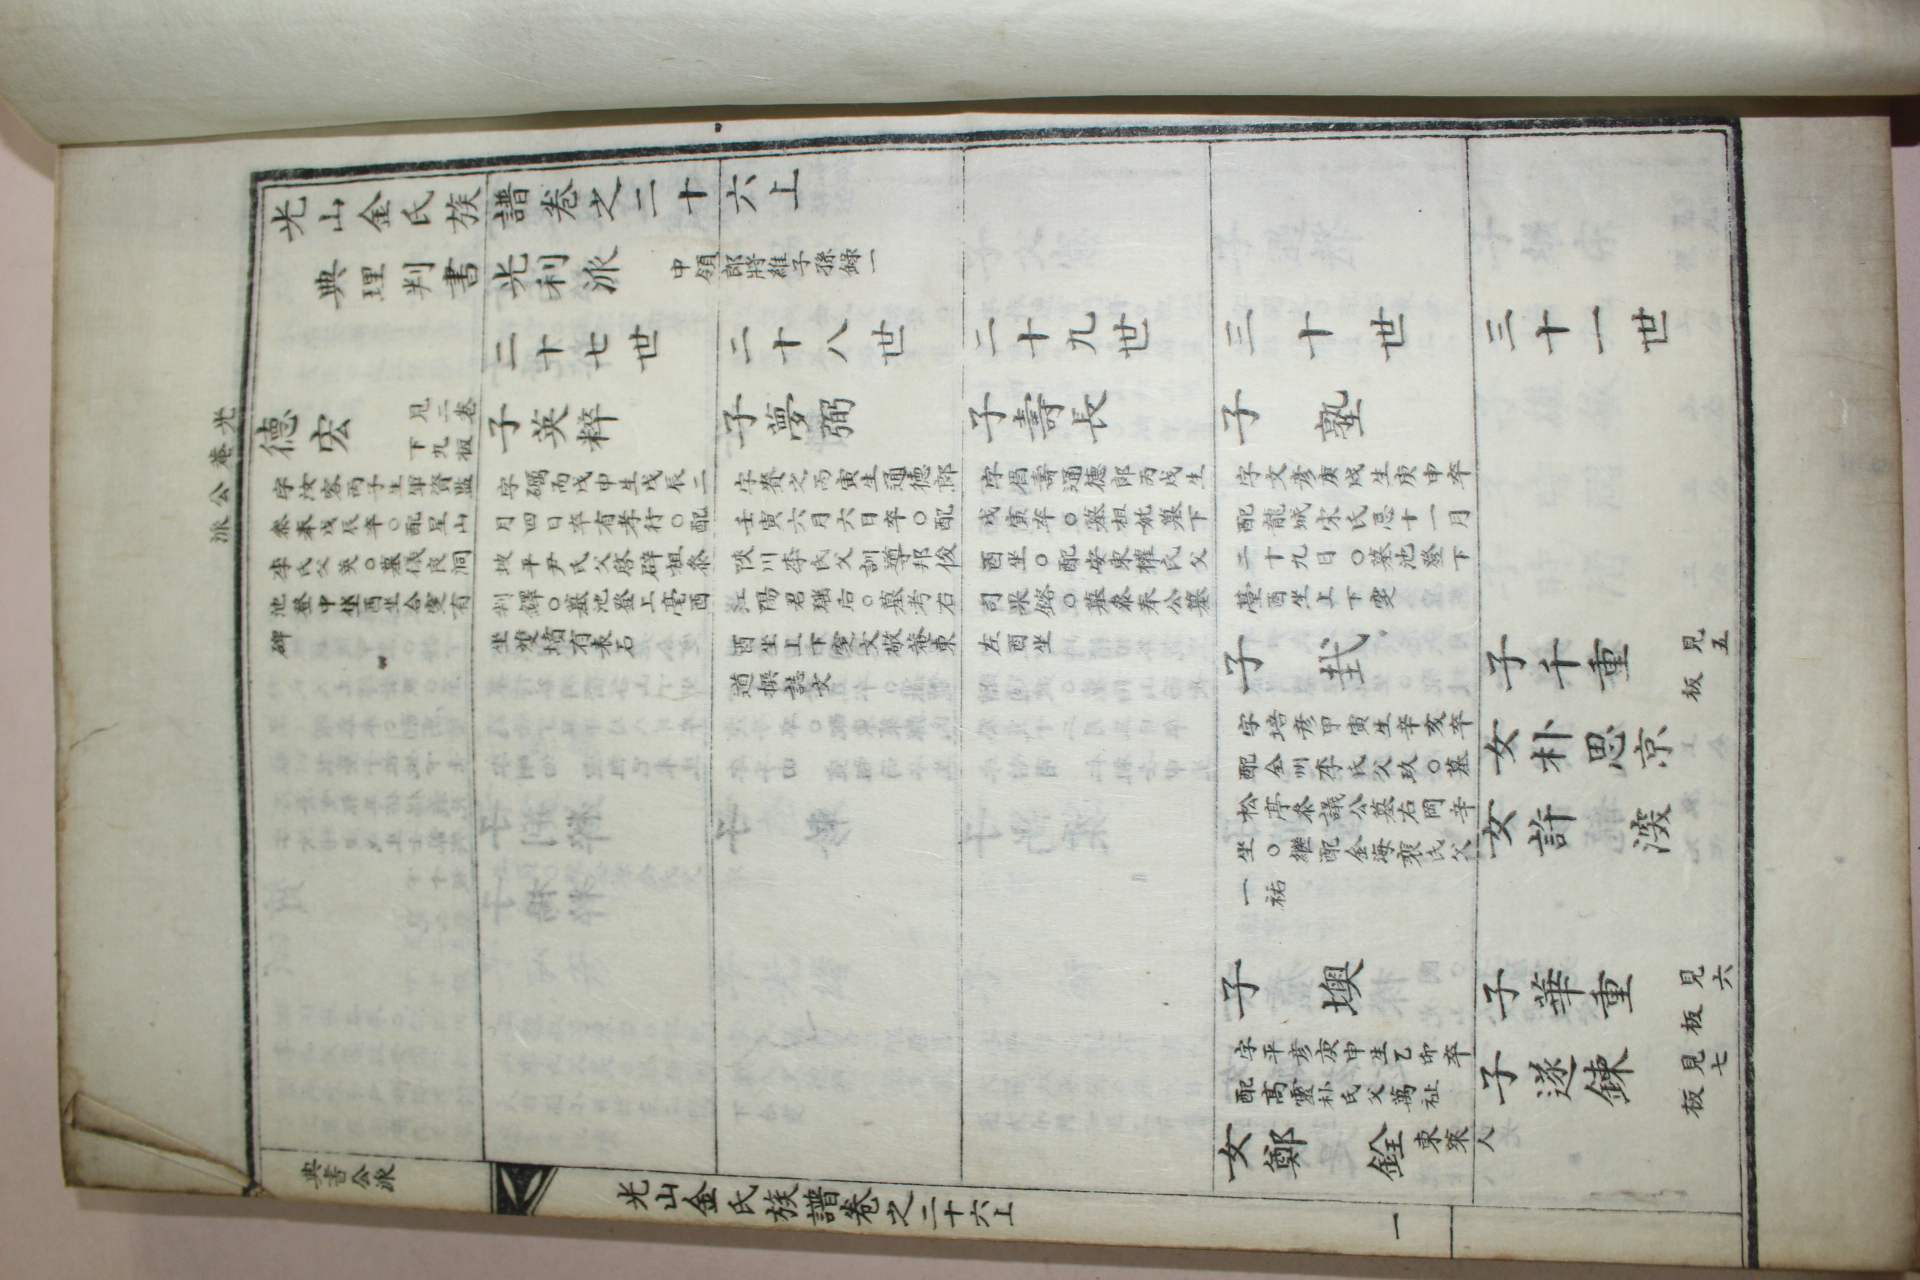 光山金氏族譜卷之二十六上
典理判書光利派 中領郎將雒子孫錄一
二十七世
二十八世
二十九世
三十世
三十一世
光菴公派
德宏 見二卷下九板
字汝容丙子生軍資監
參奉戊辰卒○配星山
李氏父英○墓後良洞
池登中坐酉坐合窆有
碑
子英粹
字礪而戊申生戊辰二
月四日卒有孝行○配
坡平尹氏父啓辟祖參
判鐸○墓池登上亳酉
坐雙墳有表石
子夢弼
字賚之丙寅生通德郎
壬寅六月六日卒○配
陜川李氏父訓導邦俊
江陽君瑤后○墓考右
酉坐上下窆文敬菴東
道撰誌文
子壽長
字眉壽通德郎丙戌生
戊寅卒○墓祖妣墓下
酉坐○配安東權氏父
司果鎔○墓參奉公墓
左酉坐
子塾
字文彦庚戌生庚申卒
配龍城宋氏忌十一月
二十九日○墓池登下
臺酉坐上下窆
子
字培彦甲寅生辛亥卒
配全州李氏父玖○墓
松亭參議公墓右岡辛
坐○繼配金海裵氏父
一祐
子墺
字平彦庚申生乙卯卒
配高靈朴氏父萬祉
女鄭銓 東萊人
子千重 見五板
女朴思京
女許
子華重 見六板
子遂鍊 見七板
典書公派
光山金氏族譜卷之二十六上
一